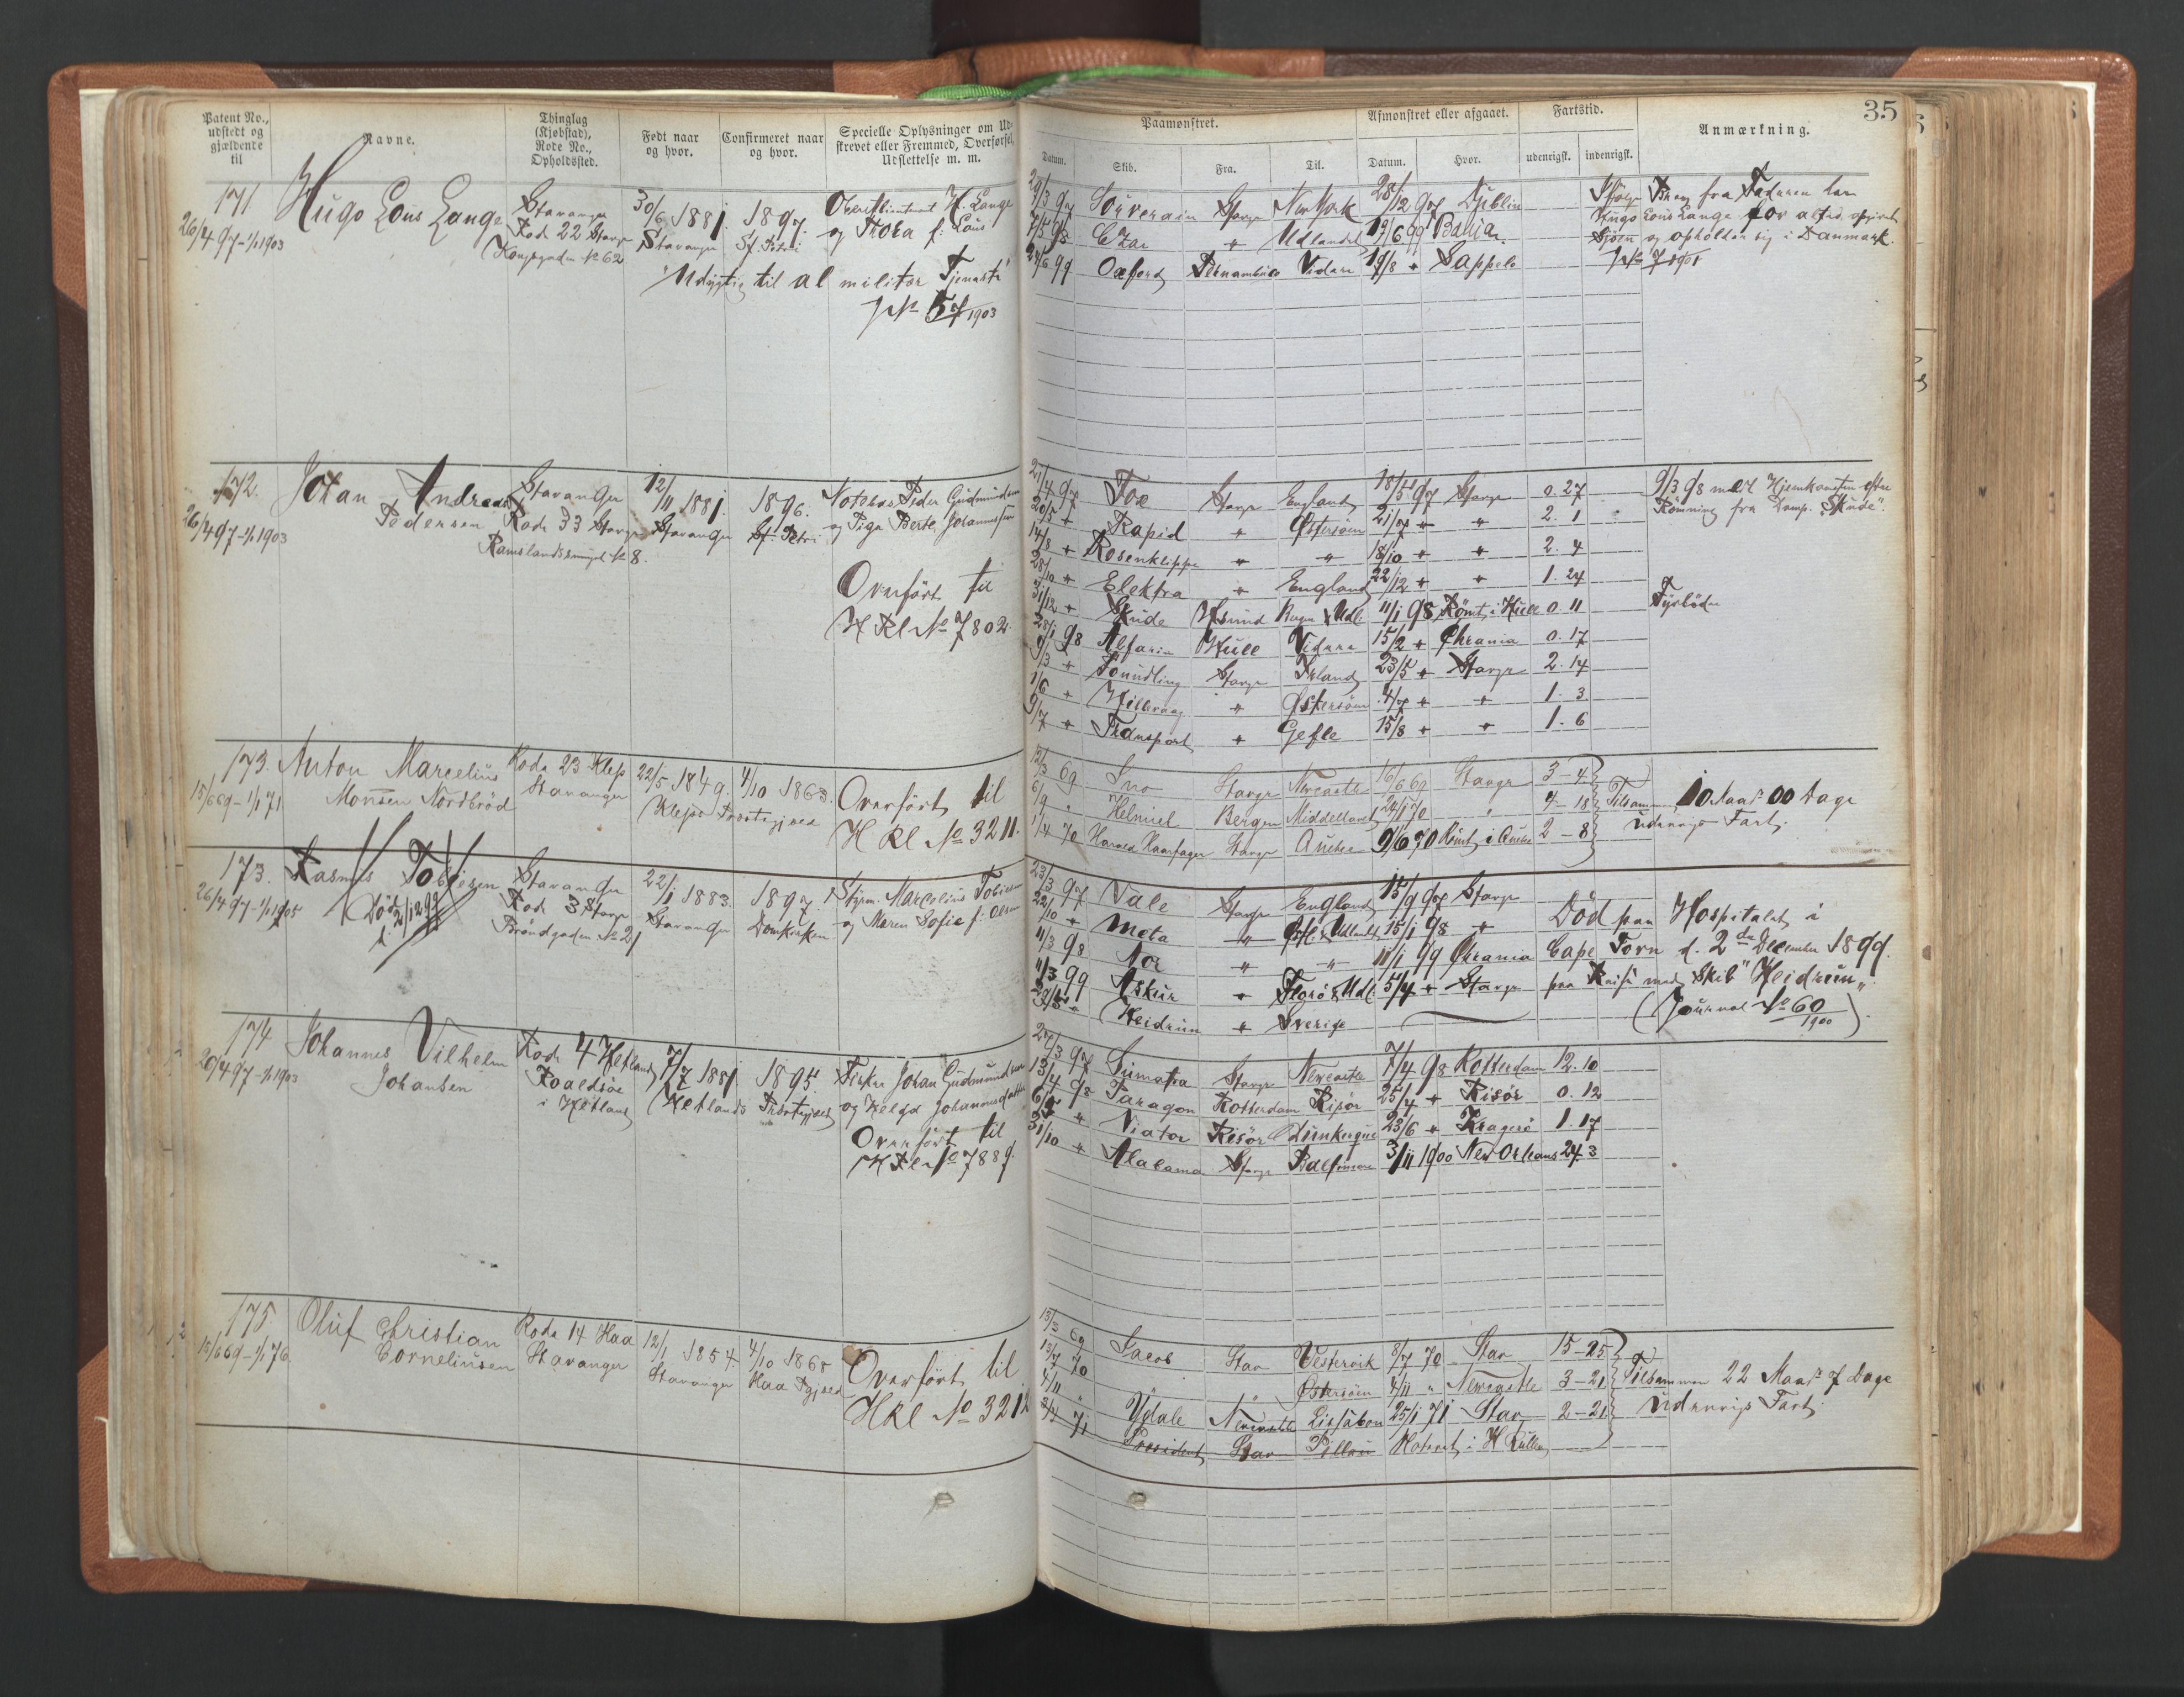 Patent No., udstedt og gjældende til
Navne.
Thinglag (Kjøbstad), Rode No., Opholdssted.
Født naar og hvor.
Confirmeret naar og hvor.
Specielle Oplysninger om Ud-
skrevet eller Fremmed, Overførsel,
Udslettelse m. m.
171
26/4 97-1/1 1903
Hugo Lous Lange
Stavanger
Rode 22 Stavgr
Kongsgaden No 62
30/6 1881.
Stavanger
1897.
St. Petri
Oberstlieutenant H. Lange
og Thora f. Lous
"Udygtig til al militær Tjeneste"
1903
172.
26/4 97-1/1 1903
Johan Andreas
Pedersen
Stavanger
Rode 33 Stavgr
Ramslandssmuget No 8.
12/11 1881.
Stavanger
1896.
St. Petri
Peder Gudmundsen
og Pige Berte Johannesen
Overført til
H Rl No 7802
173.
15/6 69-1/1 71
Anton Marcelius
Monsen Nordbrød
Rode 23 Klep
Stavanger
22/5 1849.
4/10 1863.
Kleps Præstegjeld
Overført til
H Rl No 3211.
173.
26/4 97-1/1 1905
Rasmus Tobiesen
Død
2/12 99
Stavanger
Rode 3 Stavgr
Strandgaden No 21
22/1 1883.
Stavanger
1897
Domkirken
Styrm. Marcelius Tobiesen
og Maren Sofie f. Olsen
174
20/4 97-1/1 1903
Johannes Vilhelm
Johansen
Rode 4 Hetland
Roaldsøe
i Hetland
7/7 1881
1895
Hetlands Præstegjeld
Fisker Johan Gudmundsen
og Helga Johannesdatter
Overført til
H Rl No 7889.
175
15/6 69-1/1 76
Oluf Christian
Corneliusen
Rode 14 Haa
Stavanger
12/1 1854
Stavanger
4/10 1868
Haa Pgjeld
Overført til
H Rl No 3212
35
Paamønstret.
Afmønstret eller afgaaet.
Fartstid.
Anmærkning.
Datum.
Skib.
Fra.
Til.
Datum.
Hvor.
udenrigsk.
indenrigsk.
29/3 97 Souverain Stavgr New York 28/12 97 Dublin
7/5 98 Czar " Udlandet 19/6 99 Bahia
24/6 99 Oxford Pernambuco Videre 19/8 " Sappelo
fra Faderen har
Hugo Lous Lange for altid opgivet
Sjøen og opholder sig i Danmark.
1901
21/4 97 Fox Stavgr England 18/5 97 Stavgr 0. 27
20/5 " Rapid " Østersøen 21/7 " " 2. 1
14/8 " Rosenklippe " " 18/10 " " 2. 4
28/10 " Elektra " England 22/12 " " 1. 24
31/12 " Skude Udl. 11/1 98 Rømt i Hull 0. 11
28/1 98 Hull Videre 15/2 " Chrania 0. 17
9/3 " Foundling Stavgr Island 23/5 " Stavgr 2. 14
1/6 " Hillevaag " Østersøen 4/7 " " 1. 3
9/7 " Transport " Gefle 15/8 " " 1. 6
9/3 98 meldt Hjemkomsten efter
Rømning fra Damp. "Skude".
Fyrbøder
12/3 69 Sno Stavgr Newcastle 16/6 69 Stavgr 3-4
6/9 " Helmiel Bergen Middelhavet 24/1 70 " 4-18
1/4 70 Harald Haarfager Stavgr Quebec 9/6 70 Rømt i Quebec 2-8
Tilsammen 10 Maad. 00 Dage
udenrigs Fart.
23/3 97 Vale Stavgr England 15/9 97 Stavgr
22/10 " Meta " 15/1 98 "
11/3 98 Nor " " 11/1 99 Chrania
11/3 99 Askur " Florø & Udl. 5/4 " Stavgr
29/5 " Heidrun " Sverige
Død paa Hospitalet i
Cape Town d. 2den December 1899.
paa Reise med Skib "Heidrun"
(Journal No 60/1900).
27/3 97 Sumatra Stavgr Newcastle 7/4 98 Rotterdam 12. 10
13/4 98 Paragon Rotterdam Risør 25/4 " Risør 0. 12
6/5 " Viator Risør Dunkerque 23/6 " Kragerø 1. 17
31/10 " Alabama Stavgr Baltimore 3/11 1900 New Orleans 24. 3
13/3 69 Jacob Stav Vestervik 8/7 70 Stav 15-25
13/7 70 " Østersøen 4/11 " Newcastle 3-21
4/11 " Ydale Newcastle Lissabon 25/1 71 Stav 2-21
President Stav Pillau Noteret i H Rullen
Tilsammen 22 Maad. 7 Dage
udenrigs Fart.